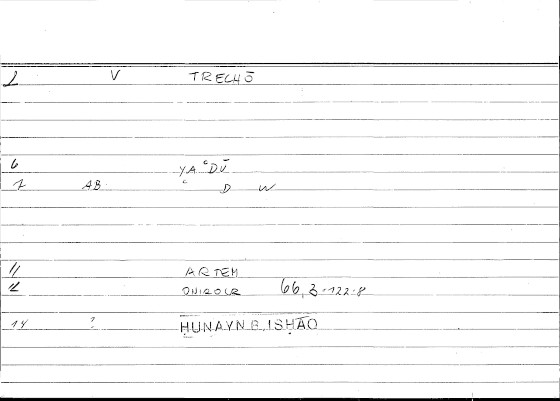 1 V TRECHŌ
6 YAʿDŪ
7 AB ʿ D W
11 ARTEM
12 ONIROCR 66, 3-122.8
14 ? ḤUNAYN B. ISḤĀQ